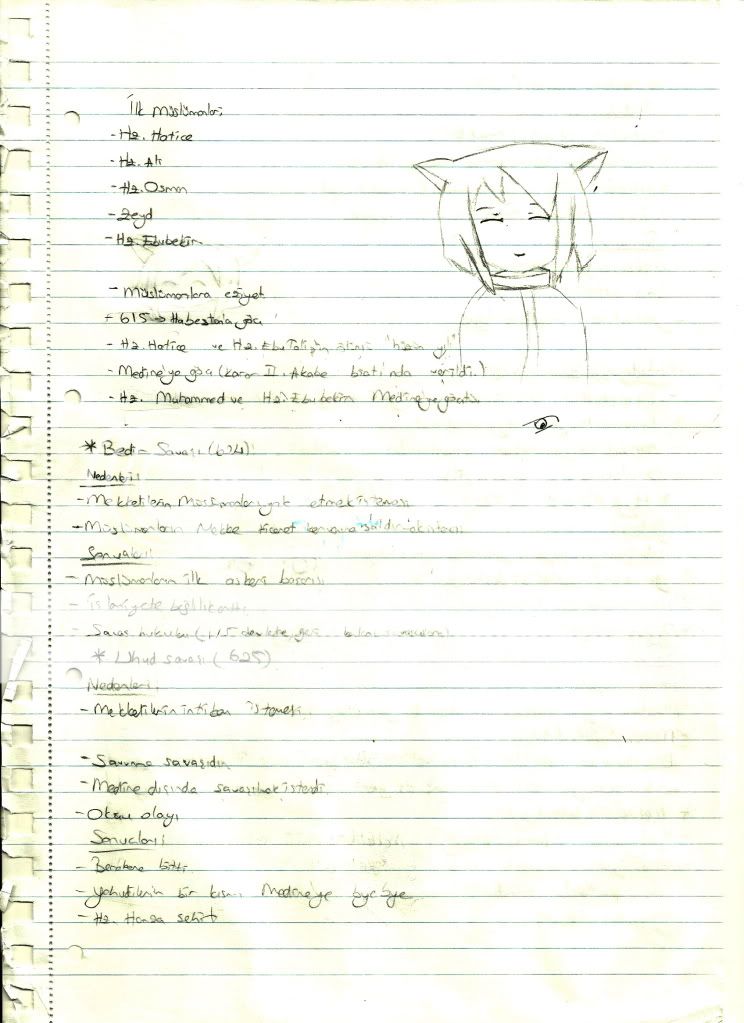 İlk Müslümanlar;
- Hz. Hatice
- Hz. Ali
- Hz. Osman
- Zeyd
- Hz. Ebubekir
- Müslümanlara eziyet
+ 615 → Habeşistan'a göç
- Hz. Hatice ve Hz. Ebu Talip'in ölümü "hüzün yılı"
- Medine'ye göç (karar II. Akabe biatı'nda verildi.)
- Hz. Muhammed ve Hz. Ebubekir Medine'ye göçtü.
* Bedir Savaşı (624)
Nedenleri
- Mekkelilerin Müslümanları yok etmek istemesi
- Müslümanların Mekke ticaret kervanına saldırmak istemesi
Sonuçları
- Müslümanların ilk askeri başarısı
- İslamiyete bağlılık arttı.
- Savaş hukuku (1/5 devlete, geri kalan
* Uhud savaşı (625)
Nedenleri
- Mekkelilerin intikam istemesi.
- Savunma savaşıdır
- Medine dışında savaşılmak istendi.
- Okçu olayı
Sonuçları
- Berabere bitti.
- Yahudilerin bir kısmı Medine'ye bye bye
- Hz. Hamza şehit